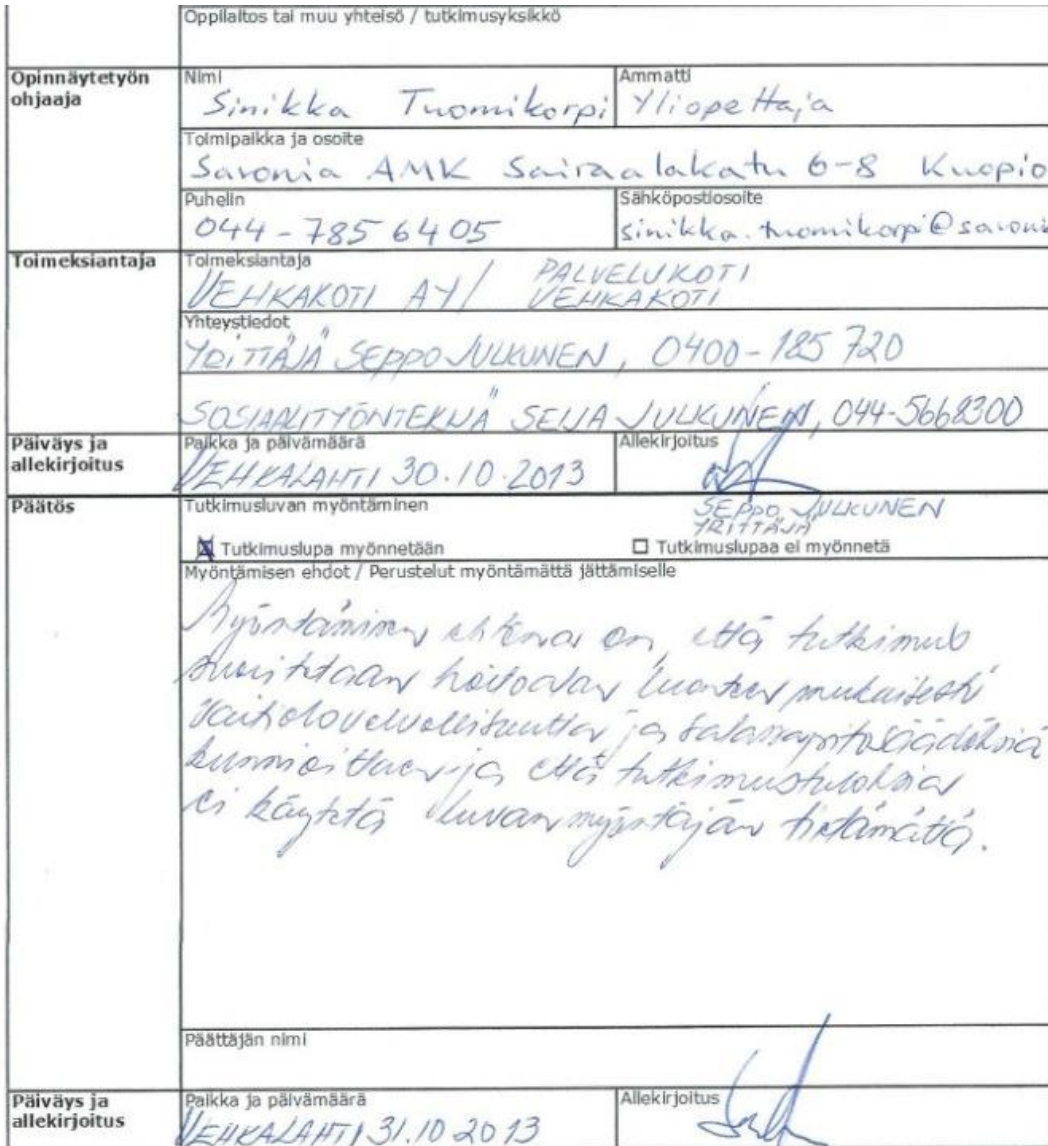 Oppilaitos tai muu yhteisö / tutkimusyksikkö
Opinnäytetyön ohjaaja
Nimi
Sinikka Tuomikorpi
Ammatti
Yliopettaja
Toimipaikka ja osoite
Savonia AMK Sairaalakatu 6-8 Kuopio
Puhelin
044-785 6405
Sähköpostiosoite
sinikka.tuomikorpi@savonia
Toimeksiantaja
Toimeksiantaja
VEHKAKOTI AY/ PALVELUKOTI
VEHKAKOTI
Yhteystiedot
YRITTÄJÄ SEPPO JULKUNEN, 0400-185 720
SOSIAALITYÖNTEKIJÄ SEIJA JULKUNEN, 044-5668300
Päiväys ja allekirjoitus
Paikka ja päivämäärä
VEHKALAHTI 30.10.2013
Allekirjoitus
SEPPO JULKUNEN
YRITTÄJÄ
Päätös
Tutkimusluvan myöntäminen
Tutkimuslupa myönnetään
Tutkimuslupaa ei myönnetä
Myöntämisen ehdot / Perustelut myöntämättä jättämiselle
Myöntämisen ehtona on, että tutkimus
suoritetaan hoitoalan luonteen mukaisesti
vaitiolovelvollisuutta ja salassapitosäädöksiä
kunnioittaen ja että tutkimustuloksia
ei käytetä luvan myöntäjän tietämättä.
Päättäjän nimi
Päiväys ja allekirjoitus
Paikka ja päivämäärä
VEHKALAHTI 31.10 2013
Allekirjoitus